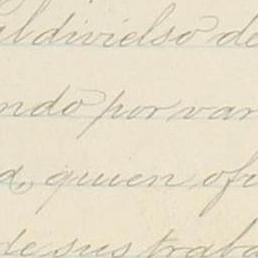 aldivielso de
ndo por var
a, quien ofr
de sus traba